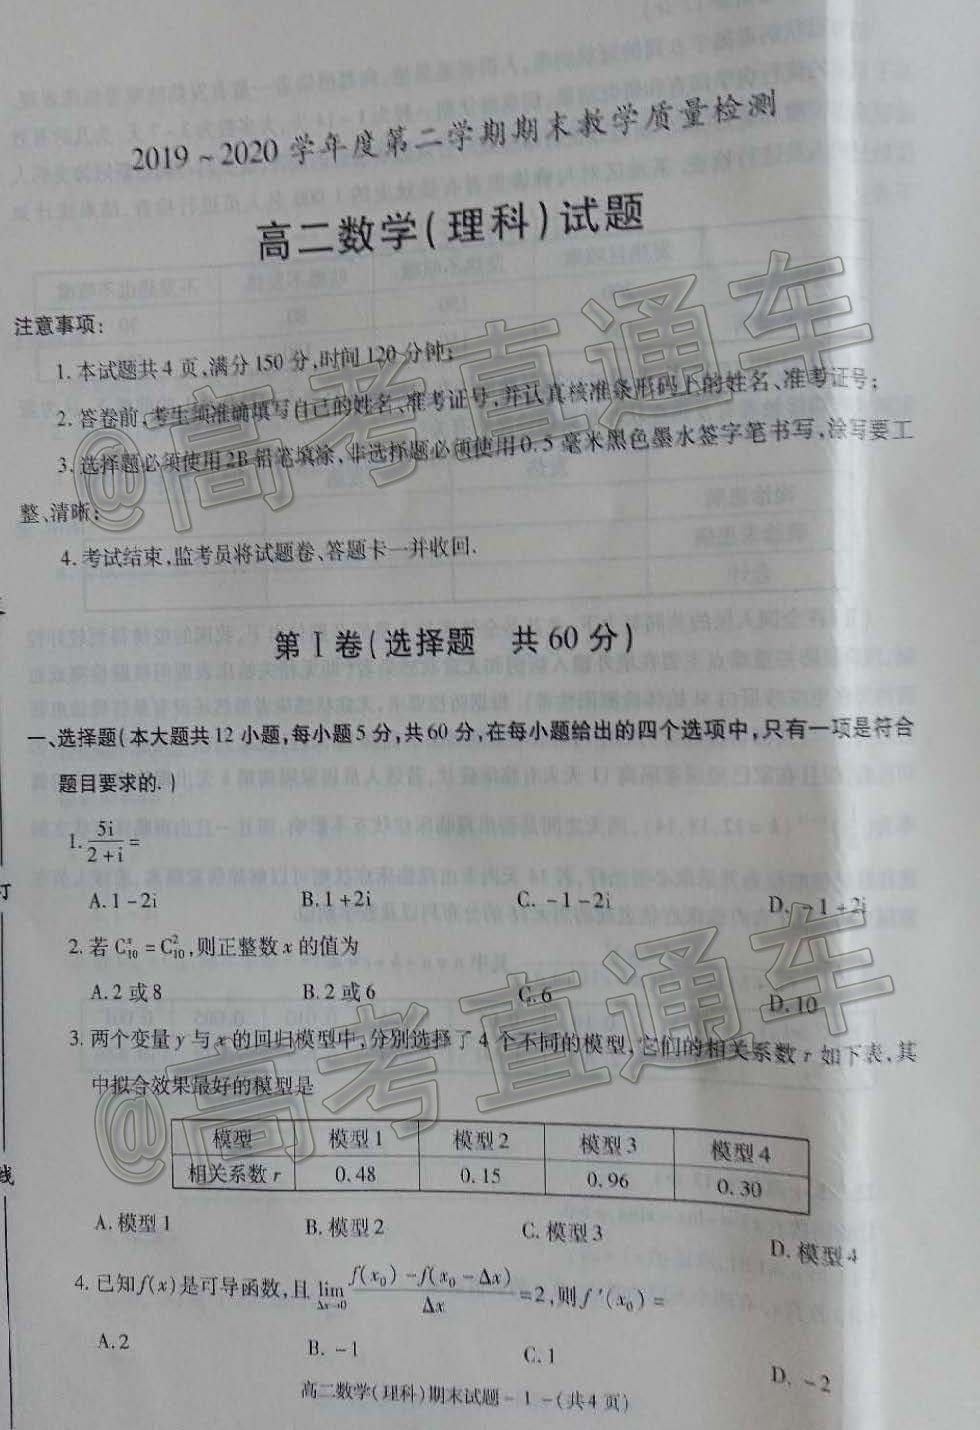 2019～2020学年度第二学期期末教学质量检测
高二数学(理科)试题
注意事项:
1.本试题共4页,满分150分,时间120分钟;
2.答卷前,考生须准确填写自己的姓名、准考证号,并认真核准条形码上的姓名、准考证号;
3.选择题必须使用2B铅笔填涂,非选择题必须使用0.5毫米黑色墨水签字笔书写,涂写要工
整、清晰;
4.考试结束,监考员将试题卷、答题卡一并收回.
第Ⅰ卷(选择题 共60分)
一、选择题(本大题共12小题,每小题5分,共60分,在每小题给出的四个选项中,只有一项是符合
题目要求的.)
1. 5i/(2+i) =
A.1-2i B.1+2i C.-1-2i D.-1+2i
2.若C₁₀ˣ=C₁₀²,则正整数x的值为
A.2或8 B.2或6 C.6 D.10
3.两个变量y与x的回归模型中,分别选择了4个不同的模型,它们的相关系数r如下表,其
中拟合效果最好的模型是
模型 模型1 模型2 模型3 模型4
相关系数r 0.48 0.15 0.96 0.30
A.模型1 B.模型2 C.模型3 D.模型4
4.已知f(x)是可导函数,且lim(Δx→0) (f(x₀)-f(x₀-Δx))/Δx =2,则f′(x₀)=
A.2 B.-1 C.1 D.-2
高二数学(理科)期末试题-1-(共4页)
订
线
@高考直通车
@高考直通车